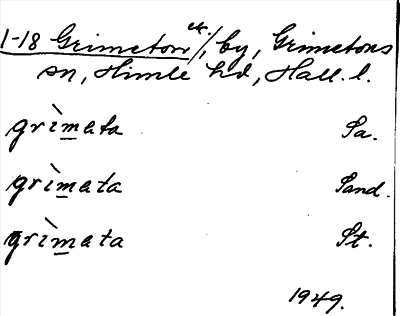 1-18 Grimeton etc./, by, Grimetons
sn, Himle hd, Hall. l.
grìm̲ata Sa.
grìm̲ata Sand.
grìm̲ata St.
1949.